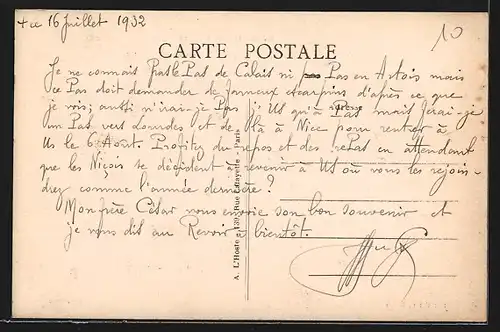 + ce 16 Juillet 1932
10
CARTE POSTALE
Je ne connais pas le Pas de Calais ni Pas en Artois mais
ce Pas doit demander de fameux escarpins d'après ce que
je vois; aussi n'irai-je Pas jus qu'à Pas mais ferai-je
un Pas vers Lourdes et de là à Nice pour rentrer à
Us le 6 Août. Profitez du repos et des rePas en attendant
que les Niçois se décident à revenir à Us où vous les rejoin-
drez comme l'année dernière?
Mon frère César vous envoie son bon souvenir et
je vous dis au Revoir à bientôt.
A. L'Hoste - 139, Rue Lafayette - Paris